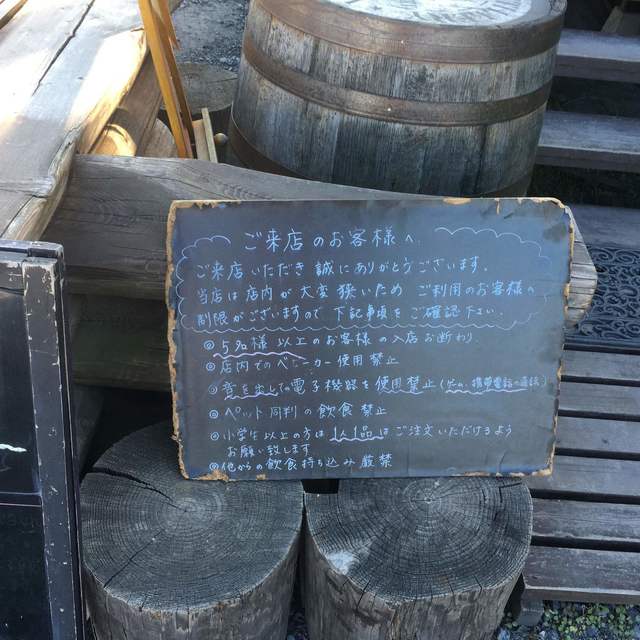 ご来店のお客様へ
ご来店いただき誠にありがとうございます。
当店は店内が大変狭いため ご利用のお客様へ
制限がございますので下記事項をご確認下さい。
◎5名様以上のお客様の入店お断わり
◎店内でのベビーカー使用禁止
◎音を出しての電子機器を使用禁止(その他、携帯電話の通話)
◎ペット同判の飲食禁止
◎小学生以上の方は1人1品はご注文いただけるよう
お願い致します
◎他からの飲食持ち込み厳禁